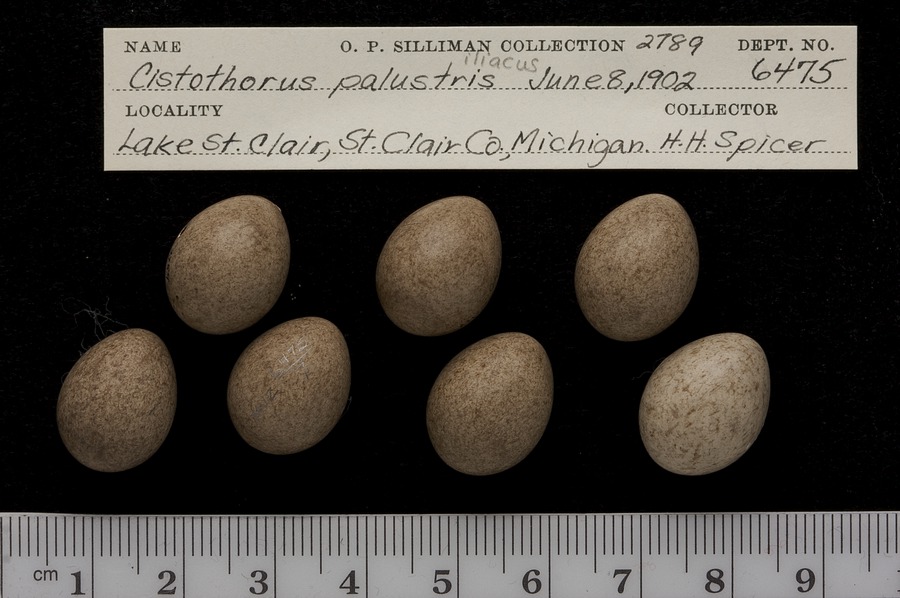 NAME O. P. SILLIMAN COLLECTION 2789 DEPT. NO.
iliacus
Cistothorus palustris June 8, 1902 6475
LOCALITY COLLECTOR
Lake St. Clair, St. Clair Co., Michigan. H.H. Spicer
cm 1 2 3 4 5 6 7 8 9